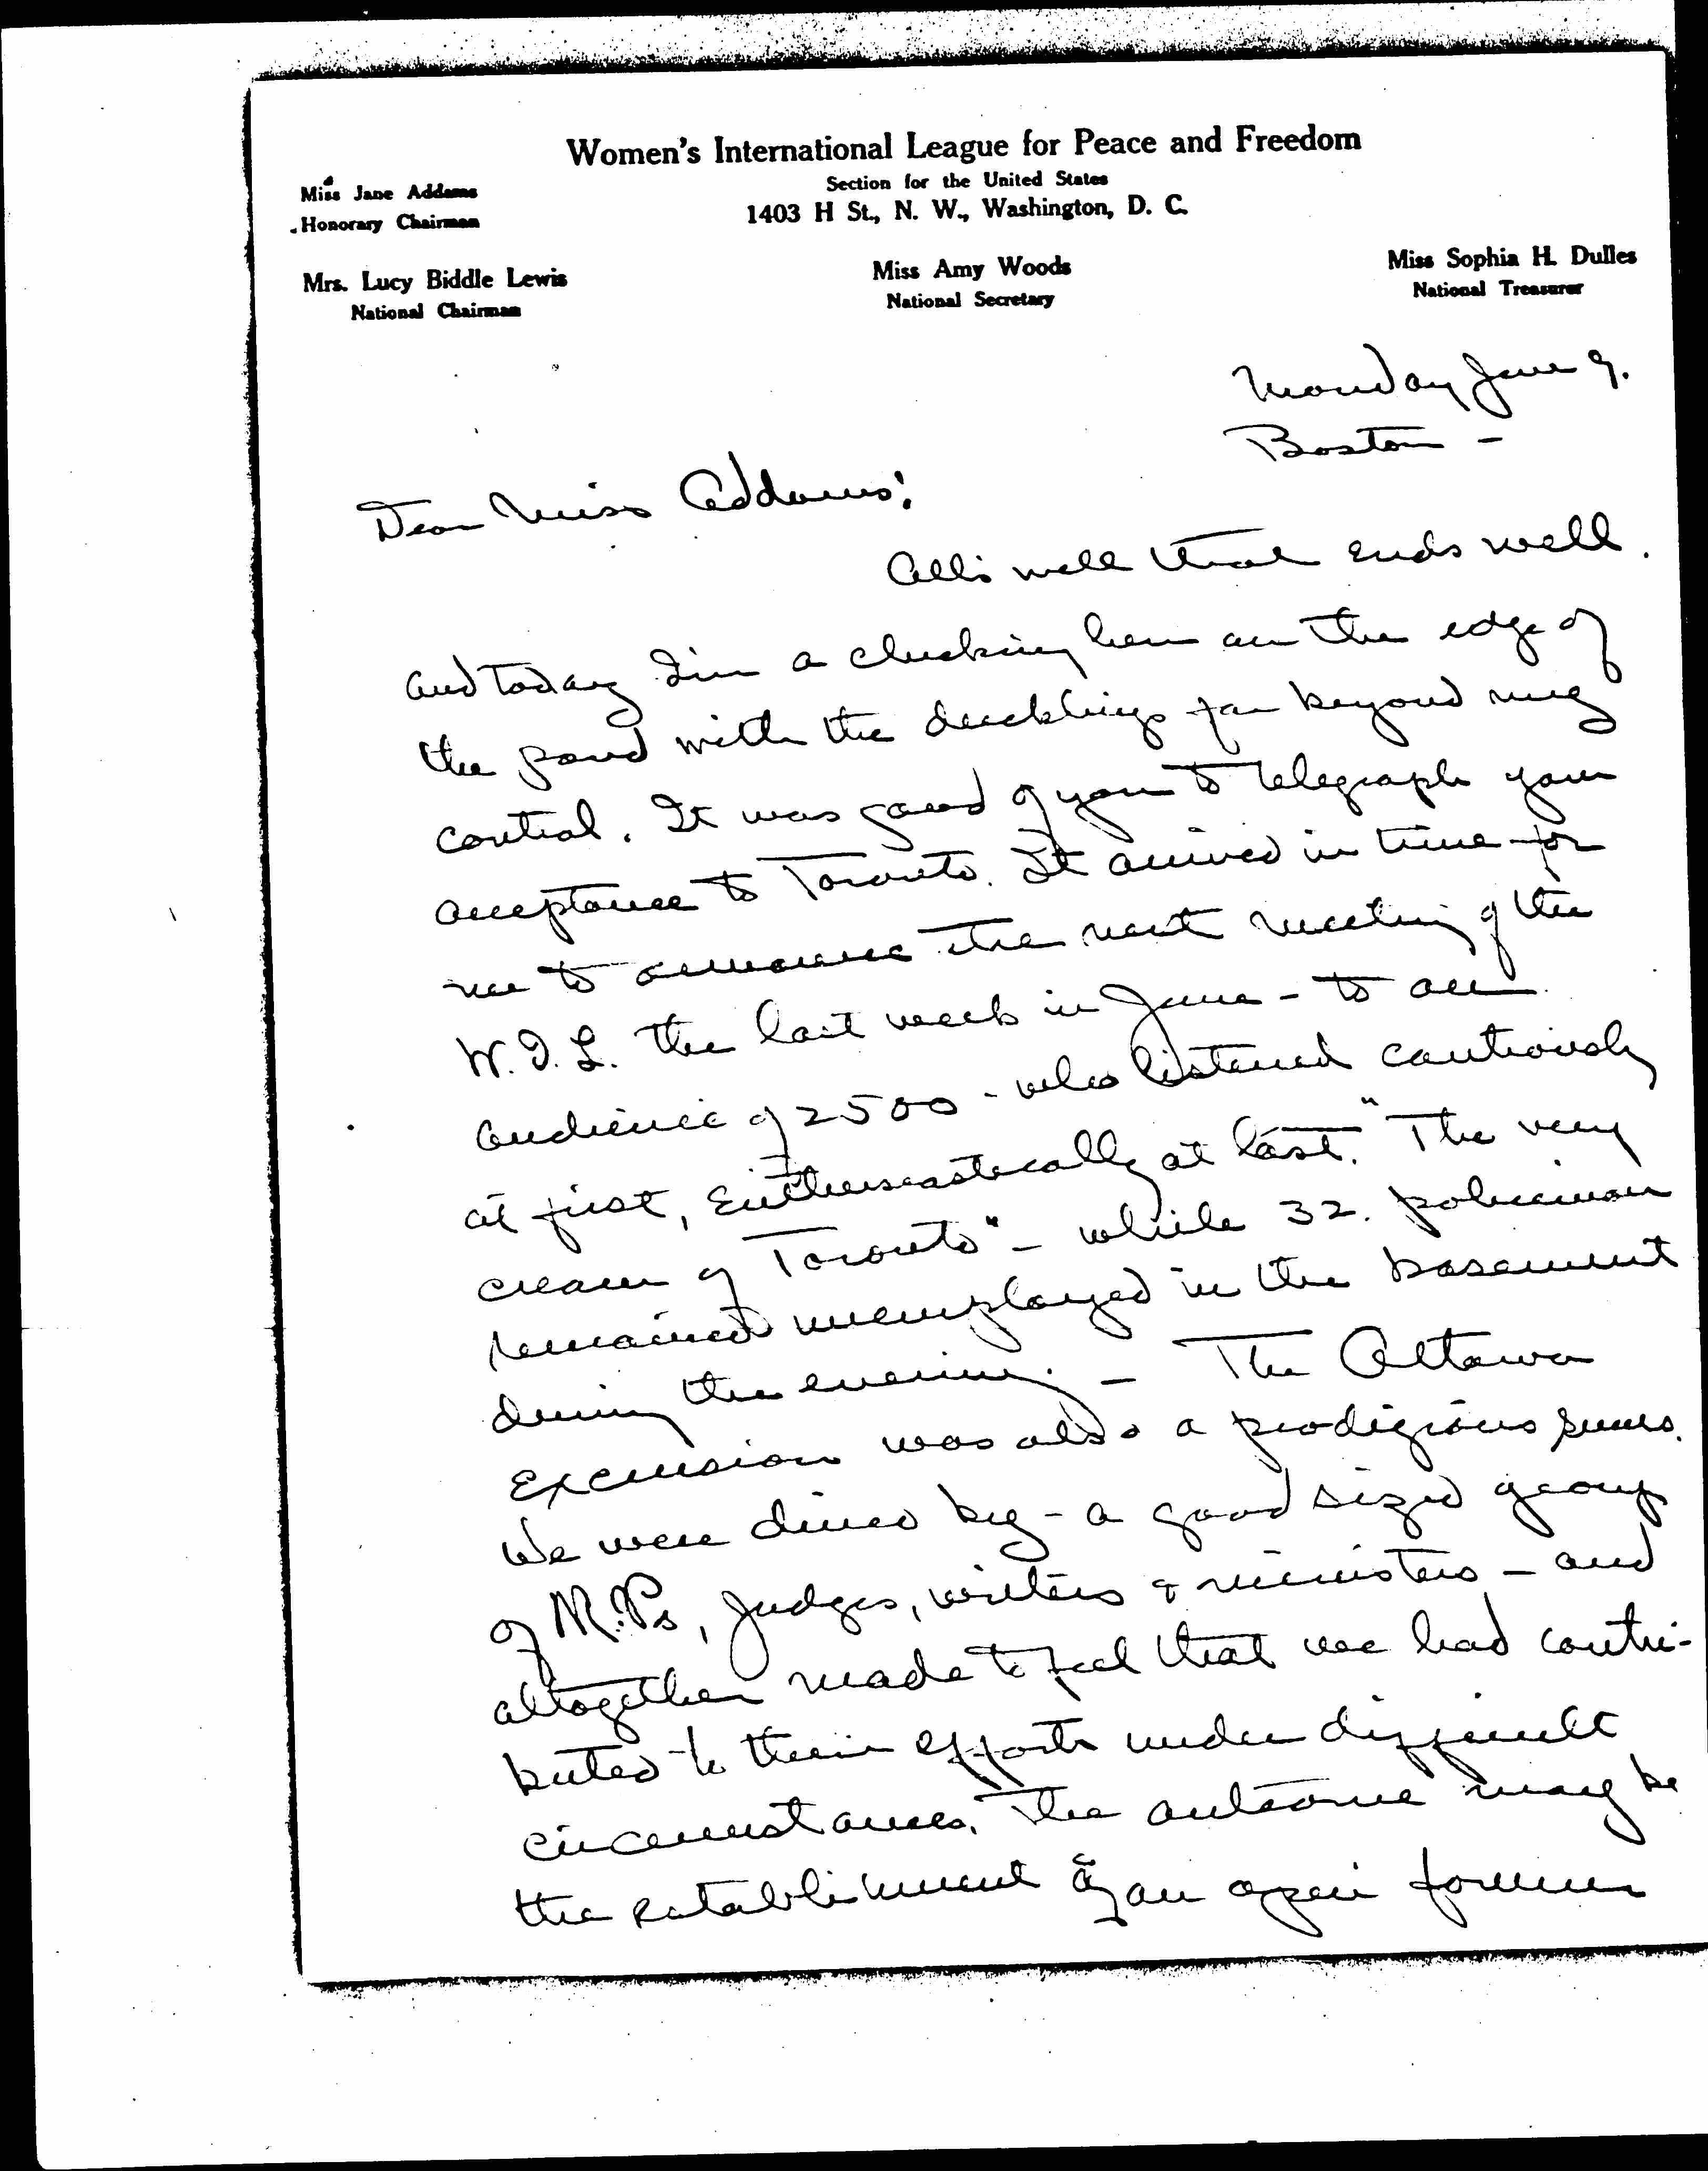 Women's International League for Peace and Freedom
Section for the United States
1403 H St., N. W., Washington, D. C.
Miss Jane Addams
Honorary Chairman
Mrs. Lucy Biddle Lewis
National Chairman
Miss Amy Woods
National Secretary
Miss Sophia H. Dulles
National Treasurer
Monday June 9.
Boston -
Dear Miss Addams:
All's well that ends well.
and today I'm a clucking hen on the edge of
the pond with the ducklings far beyond my
control. It was good of you to telegraph your
acceptance to Toronto. It arrived in time for
me to announce the next meeting of the
W.I.L. the last week in June - to an
audience of 2500 - who listened cautiously
at first, enthusiastically at last. "The very
cream of Toronto" - while 32. policemen
remained unemployed in the basement
during the evening. - The Ottawa
Excursion was also a prodigious
We were dined by - a good sized group
of M.Ps, Judges, writers & ministers - and
altogether made to feel that we had contri-
buted to their efforts under difficult
circumstances. The outcome may be
the establishment of an open forum